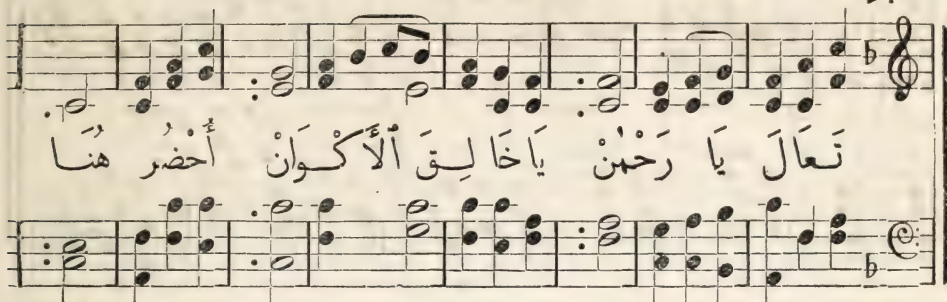 تَعَالَ يَا رَحْمٰنْ يَا خَا لِـقَ ٱلْأَكْـوَانْ أُحْضُر هُنَـا